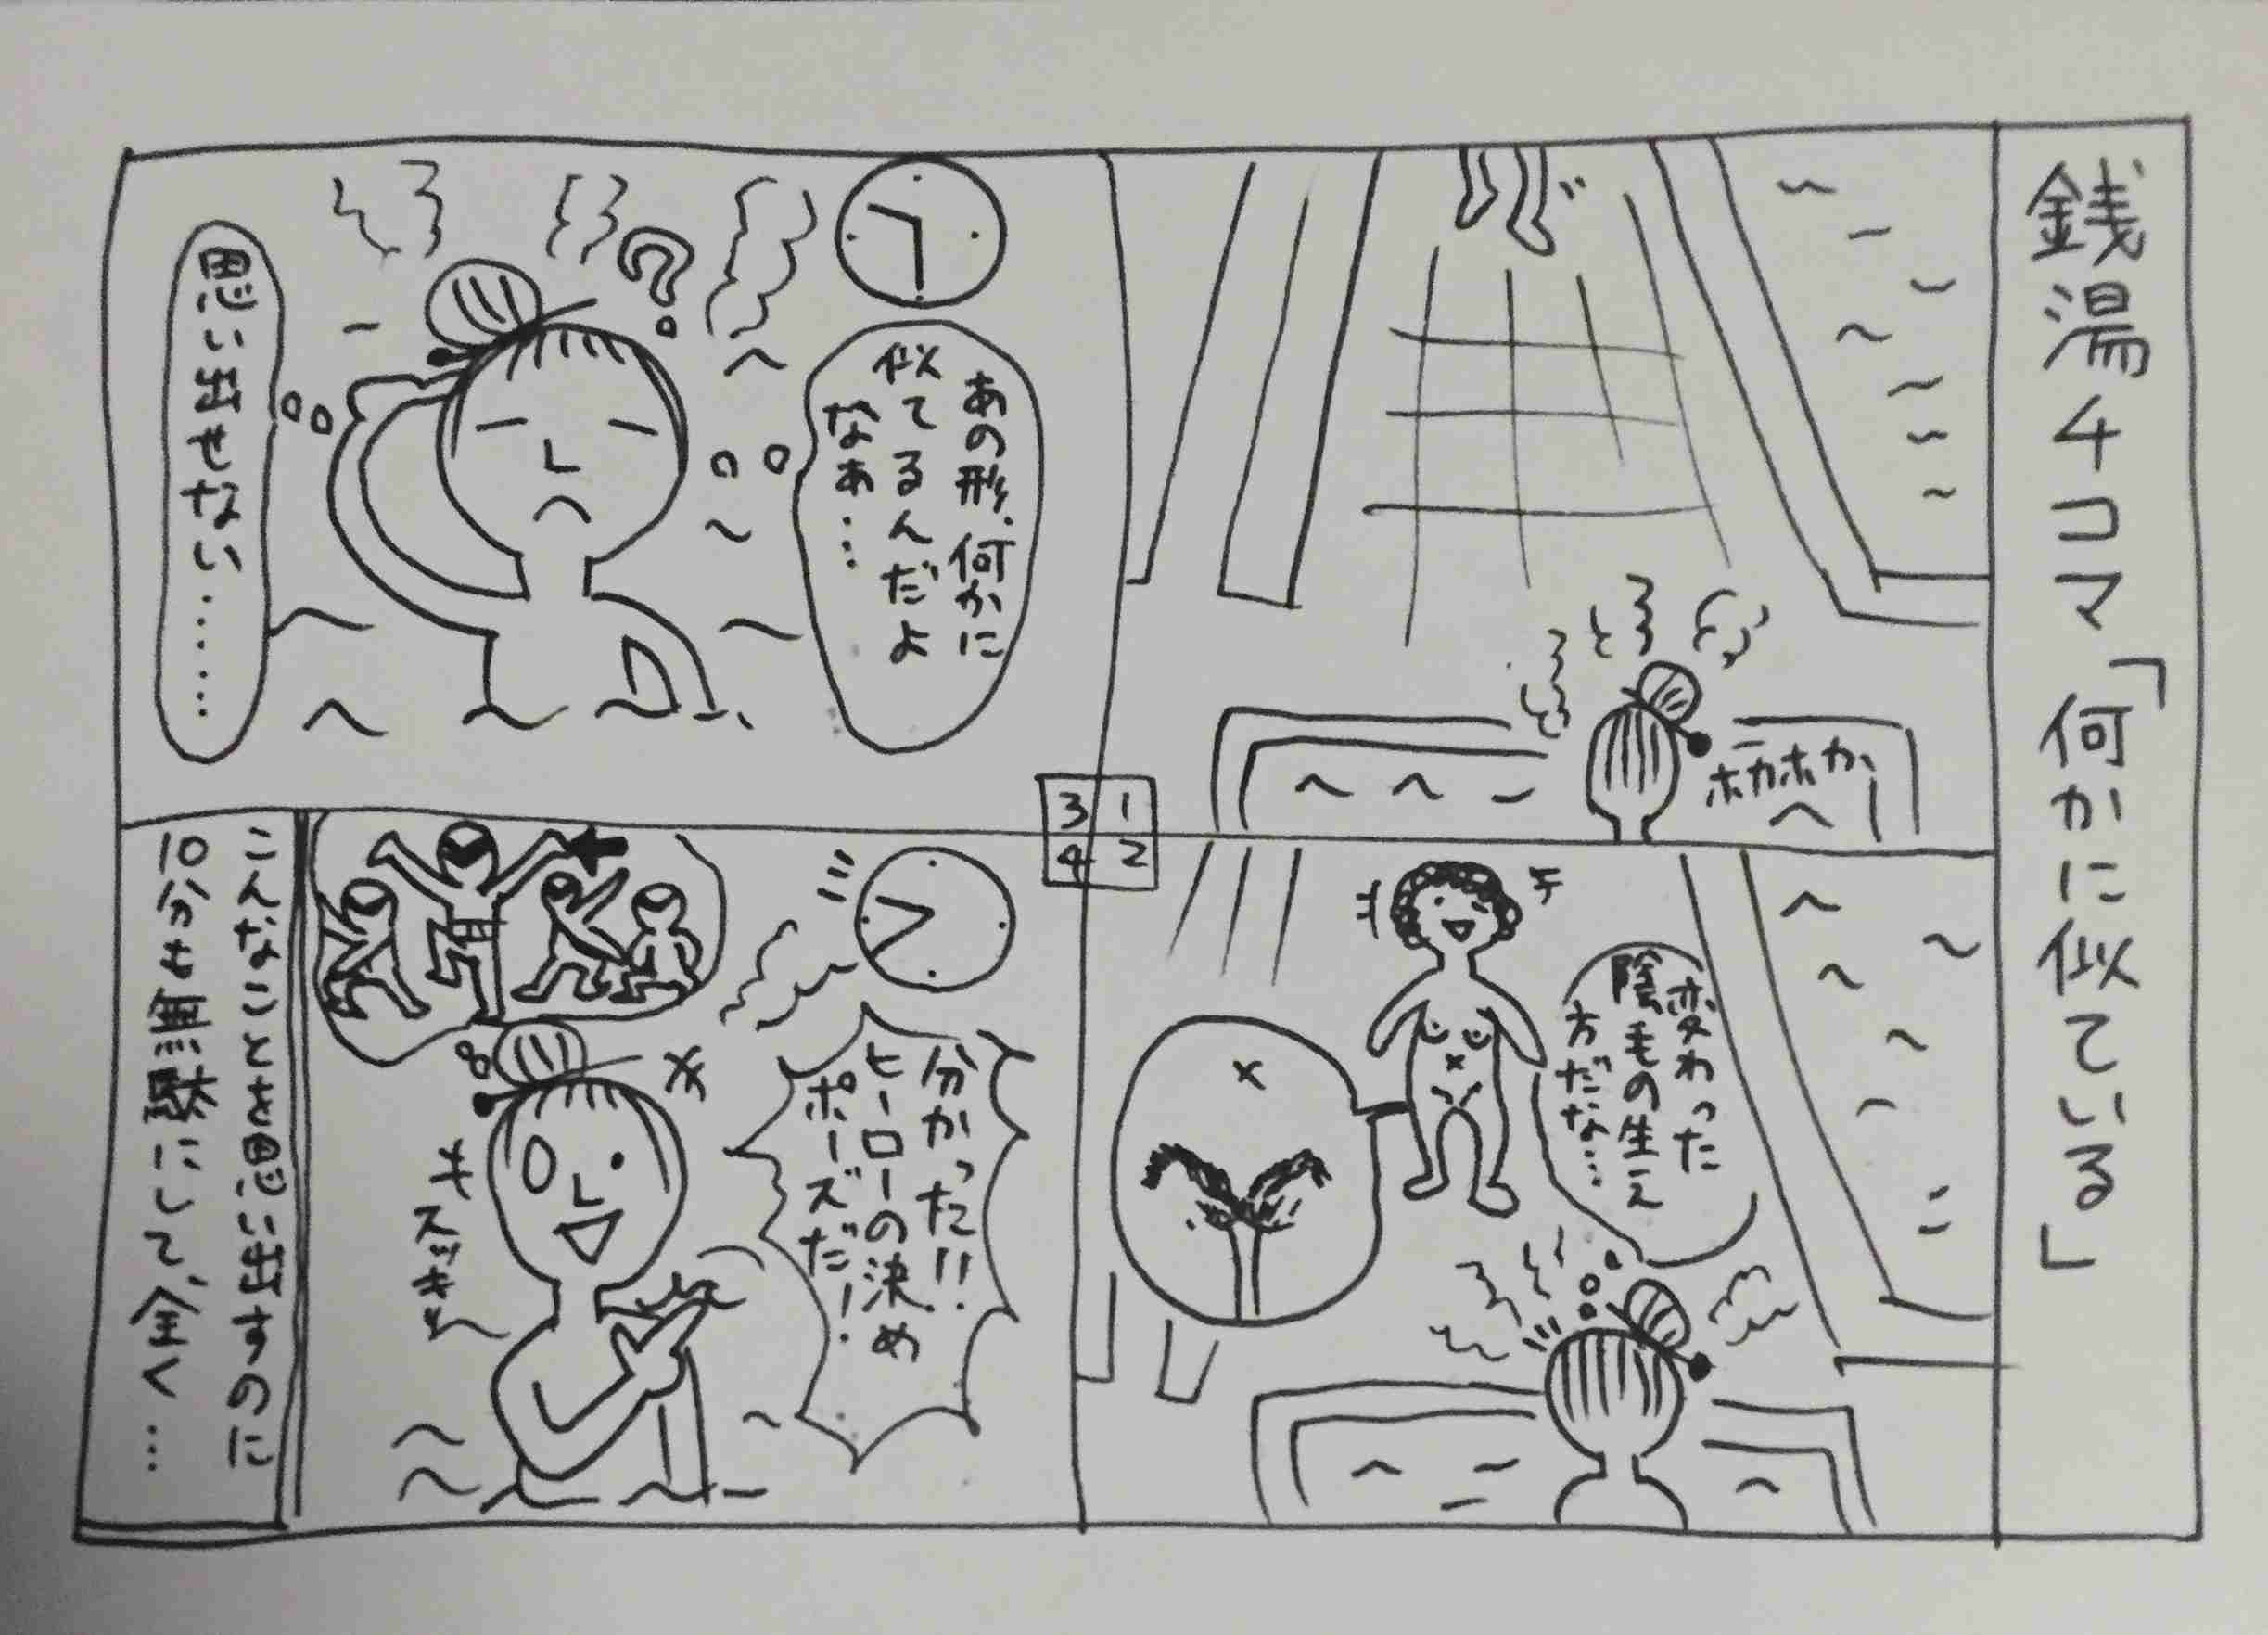 銭湯4コマ「何かに似ている」
1
2
3
4
ホカホカ
変わった
陰毛の生え
方だな…
チ
ラ
あの形、何かに
似てるんだよ
なぁ…
?
思い出せない………
分かった!!
ヒーローの決め
ポーズだ!!
スッキリ
こんなことを思い出すのに
10分も裸でいて、全く…